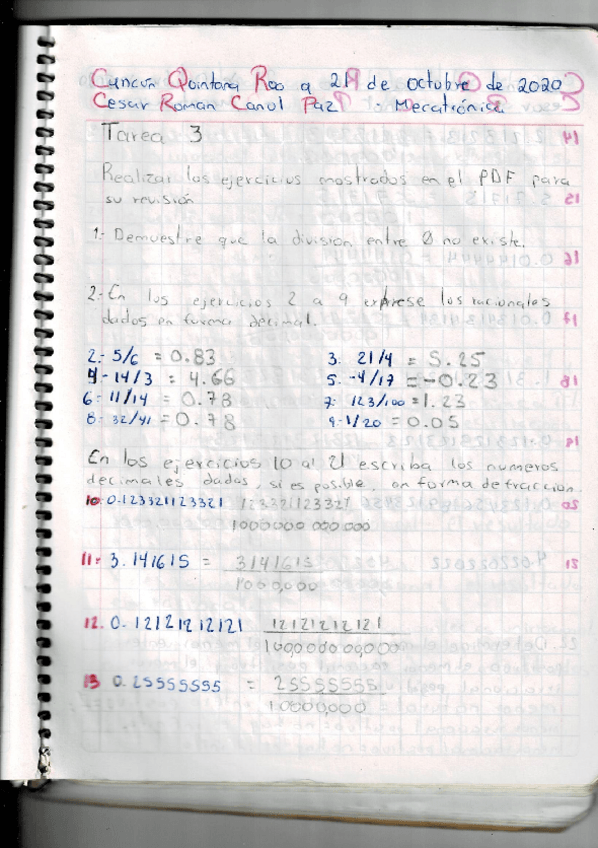 Cancún Quintana Roo a 21 de octubre de 2020
Cesar Roman Canul Paz Mecatrónica
Tarea 3
Realizar los ejercicios mostrados en el PDF para
su revisión
1.- Demuestre que la división entre 0 no existe.
2.- En los ejercicios 2 a 9 exprese los racionales
dados en forma decimal.
2.- 5/6 = 0.83 3. 21/4 = 5.25
4- 14/3 = 4.66 5. -4/17 = -0.23
6- 11/14 = 0.78 7- 123/100 = 1.23
8- 32/41 = 0.78 9- 1/20 = 0.05
En los ejercicios 10 al 21 escriba los numeros
decimales dados, si es posible, en forma de fraccion.
10. 0.123321123321 123321123321
1000000 000.000
11- 3.141615 = 3141615
1000,000
12. 0.12121212121 12121212121
13 0.25555555 = 25555555